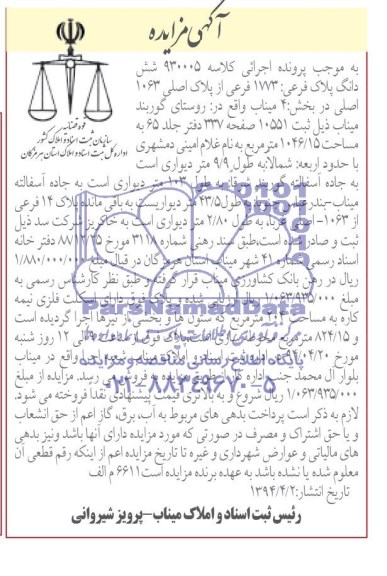 آگهی مزایده
قوه قضائیه
سازمان ثبت اسناد و املاک کشور
اداره کل ثبت اسناد و املاک استان هرمزگان
به موجب پرونده اجرائی کلاسه ۹۳۰۰۰۵ شش
دانگ پلاک فرعی: ۱۷۷۳ فرعی از پلاک اصلی ۱۰۶۳
اصلی در بخش:۴ میناب واقع در: روستای گوربند
میناب ذیل ثبت ۱۰۵۵۱ صفحه ۳۳۷ دفتر جلد ۶۵ به
مساحت ۱۰۴۶/۱۵ مترمربع به نام غلام امینی دمشهری
با حدود اربعه: شمالا:به طول ۹/۹ متر دیواری است
به جاده آسفالته دیواری است به جاده آسفالته
میناب-بندر به طول ۴۳/۵ متر دیواریست به باقی مانده پلاک ۱۴ فرعی
از ۱۰۶۳- اصلی به طول ۲/۸۰ متر دیواری است به شرکت سد ذیل
ثبت و صادر شده است،طبق سند رهنی شماره ۳۱۱۸ مورخ دفتر خانه
اسناد رسمی شماره ۴۱ شهر میناب استان هرمزگان در قبال مبلغ ۱/۸۸۰/۰۰۰/۰۰۰
ریال در رهن بانک کشاورزی میناب قرار گرفته و طبق نظر کارشناس رسمی به
مبلغ ۱/۰۶۳/۹۳۵/۰۰۰ ریال ارزیابی شده و پلاک فوق دارای اسکلت فلزی نیمه
کاره به مساحت مترمربع که ستون ها و بخشی از تیرها اجرا گردیده است
و ۸۲۴/۱۵ مترمربع ۱۲ روز شنبه
مورخ ۹۴/۰۴/۲۰ در واقع در میناب
بلوار آل محمد جنب مزایده به فروش می رسد. مزایده از مبلغ
۱/۰۶۳/۹۳۵/۰۰۰ ریال شروع و به بالاترین قیمت پیشنهادی نقدا فروخته می شود.
لازم به ذکر است پرداخت بدهی های مربوط به آب، برق، گاز اعم از حق انشعاب
و یا حق اشتراک و مصرف در صورتی که مورد مزایده دارای آنها باشد ونیز بدهی
های مالیاتی و عوارض شهرداری و غیره تا تاریخ مزایده اعم از اینکه رقم قطعی آن
معلوم شده یا نشده باشد به عهده برنده مزایده است ۶۶۱۱ م الف
تاریخ انتشار:۱۳۹۴/۴/۲
رئیس ثبت اسناد و املاک میناب-پرویز شیروانی
ParsNamadData
پایگاه اطلاع رسانی مناقصه و مزایده
۰۲۱-۸۸۳۴۹۶۷۰-۵